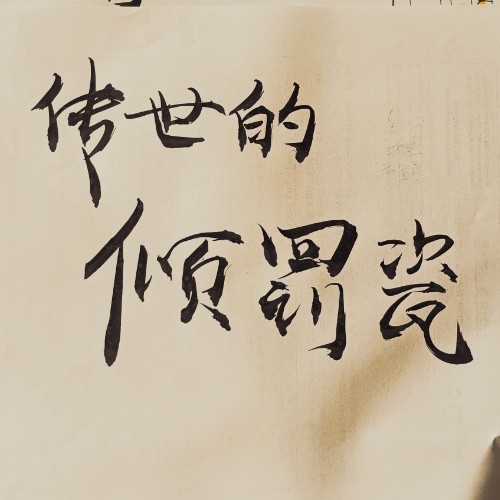 传世的
倾罚瓷